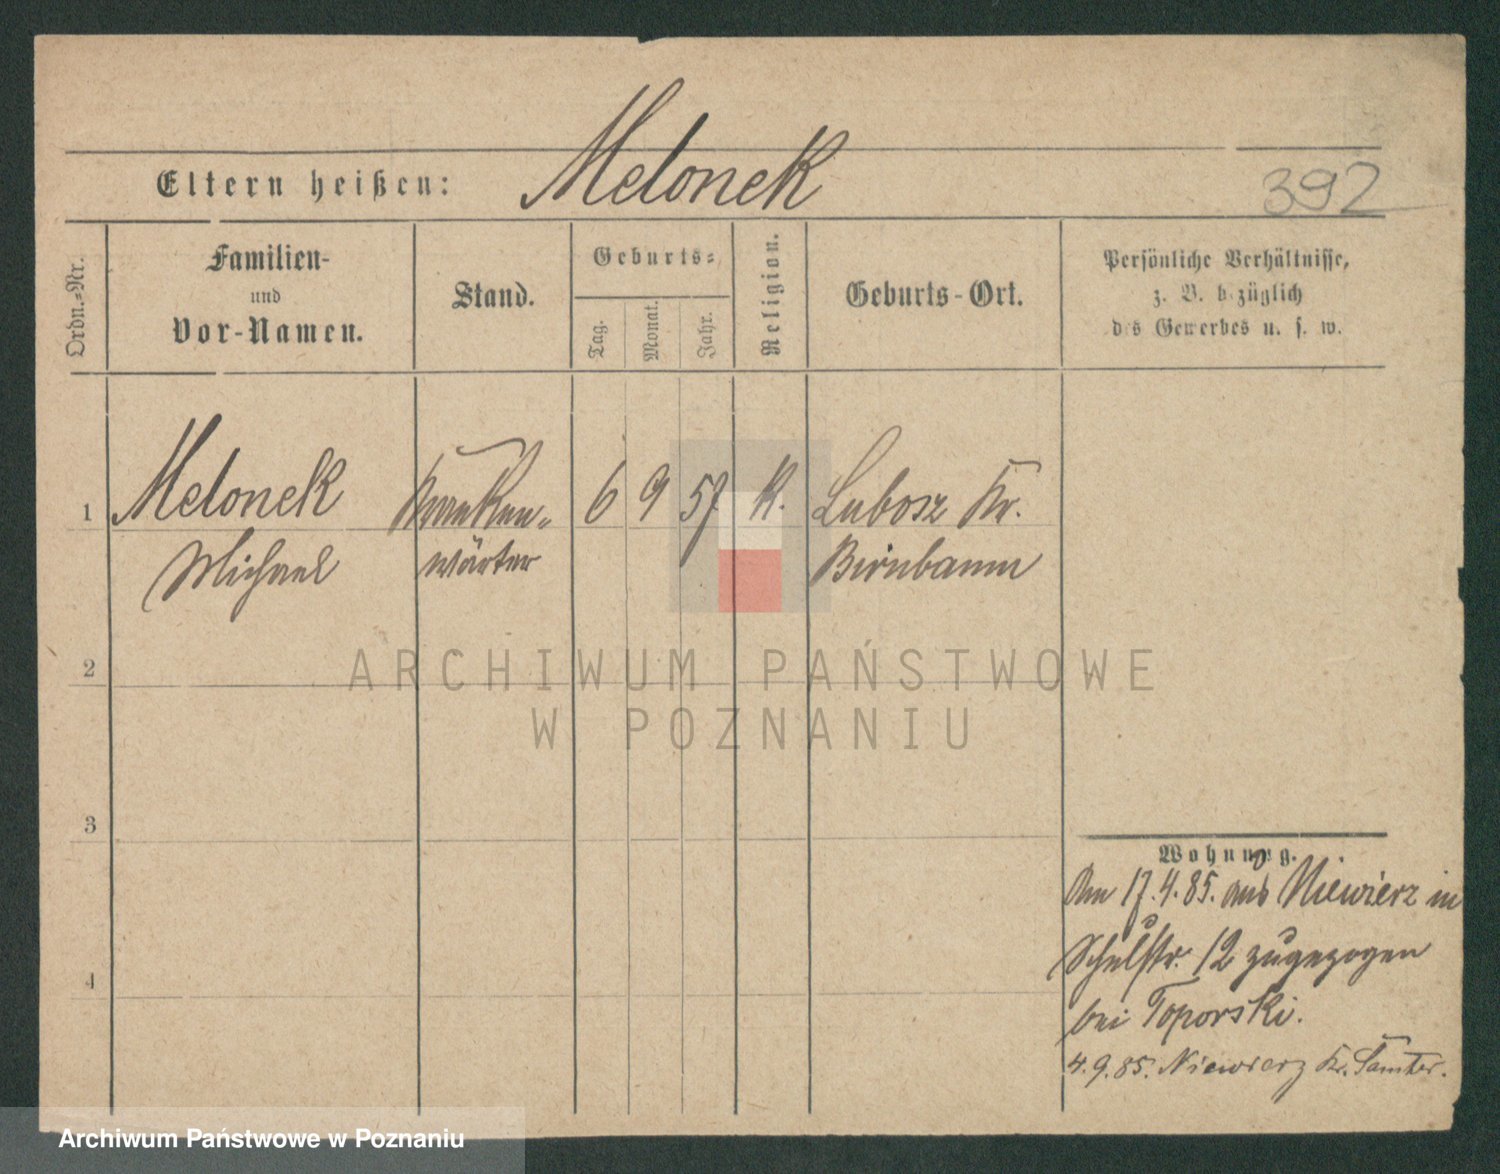 Eltern heißen: Melonek
392
Ordn.=Nr.
Familien-
und
Vor-Namen.
Stand.
Geburts=
Tag.
Monat.
Jahr.
Religion.
Geburts-Ort.
Persönliche Verhältnisse,
z. B. bezüglich
des Gewerbes u. s. w.
1 Melonek Kranken- 6 9 57 K. Lubosz Kr.
Michael wärter Birnbaum
2
3
4
Wohnung.
Am 17.4.85. aus Niewierz in
Schulstr. 12 zugezogen
bei Toporski.
4.9.85. Niewierz Kr. Samter.
ARCHIWUM PAŃSTWOWE
W POZNANIU
Archiwum Państwowe w Poznaniu